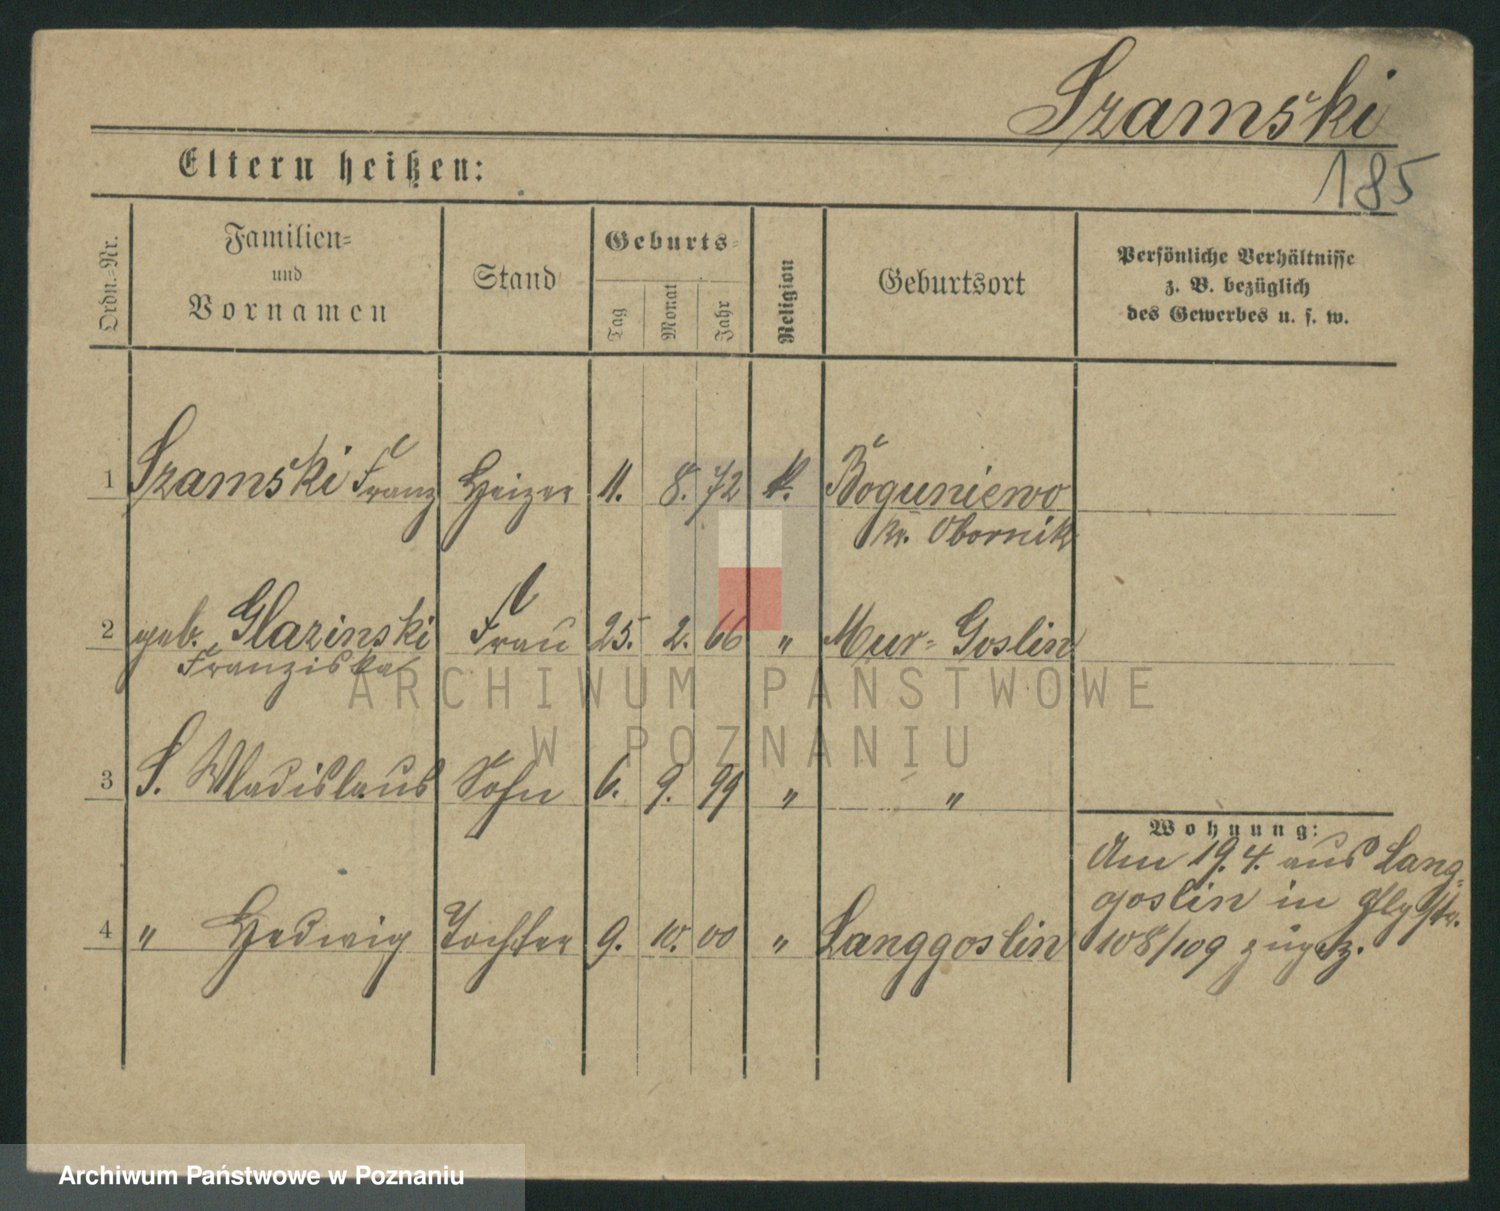 Szamski
185
Eltern heißen:
Ordn.-Nr.
Familien-
und
Vornamen
Stand
Geburts-
Tag
Monat
Jahr
Religion
Geburtsort
Persönliche Verhältnisse
z. B. bezüglich
des Gewerbes u. s. w.
1 Szamski Franz Heizer 11. 8. 72 k. Boguniewo
Kr. Obornik
2 geb. Glazinski Frau 25. 2. 66 " Mur-Goslin
Franziska
3 S. Wladislaus Sohn 6. 9. 99 " "
Wohnung:
Am 19.4. aus Lang-
goslin in
4 " Hedwig Tochter 9. 10. 00 " Langgoslin
108/109 zugez.
ARCHIWUM PAŃSTWOWE
W POZNANIU
Archiwum Państwowe w Poznaniu